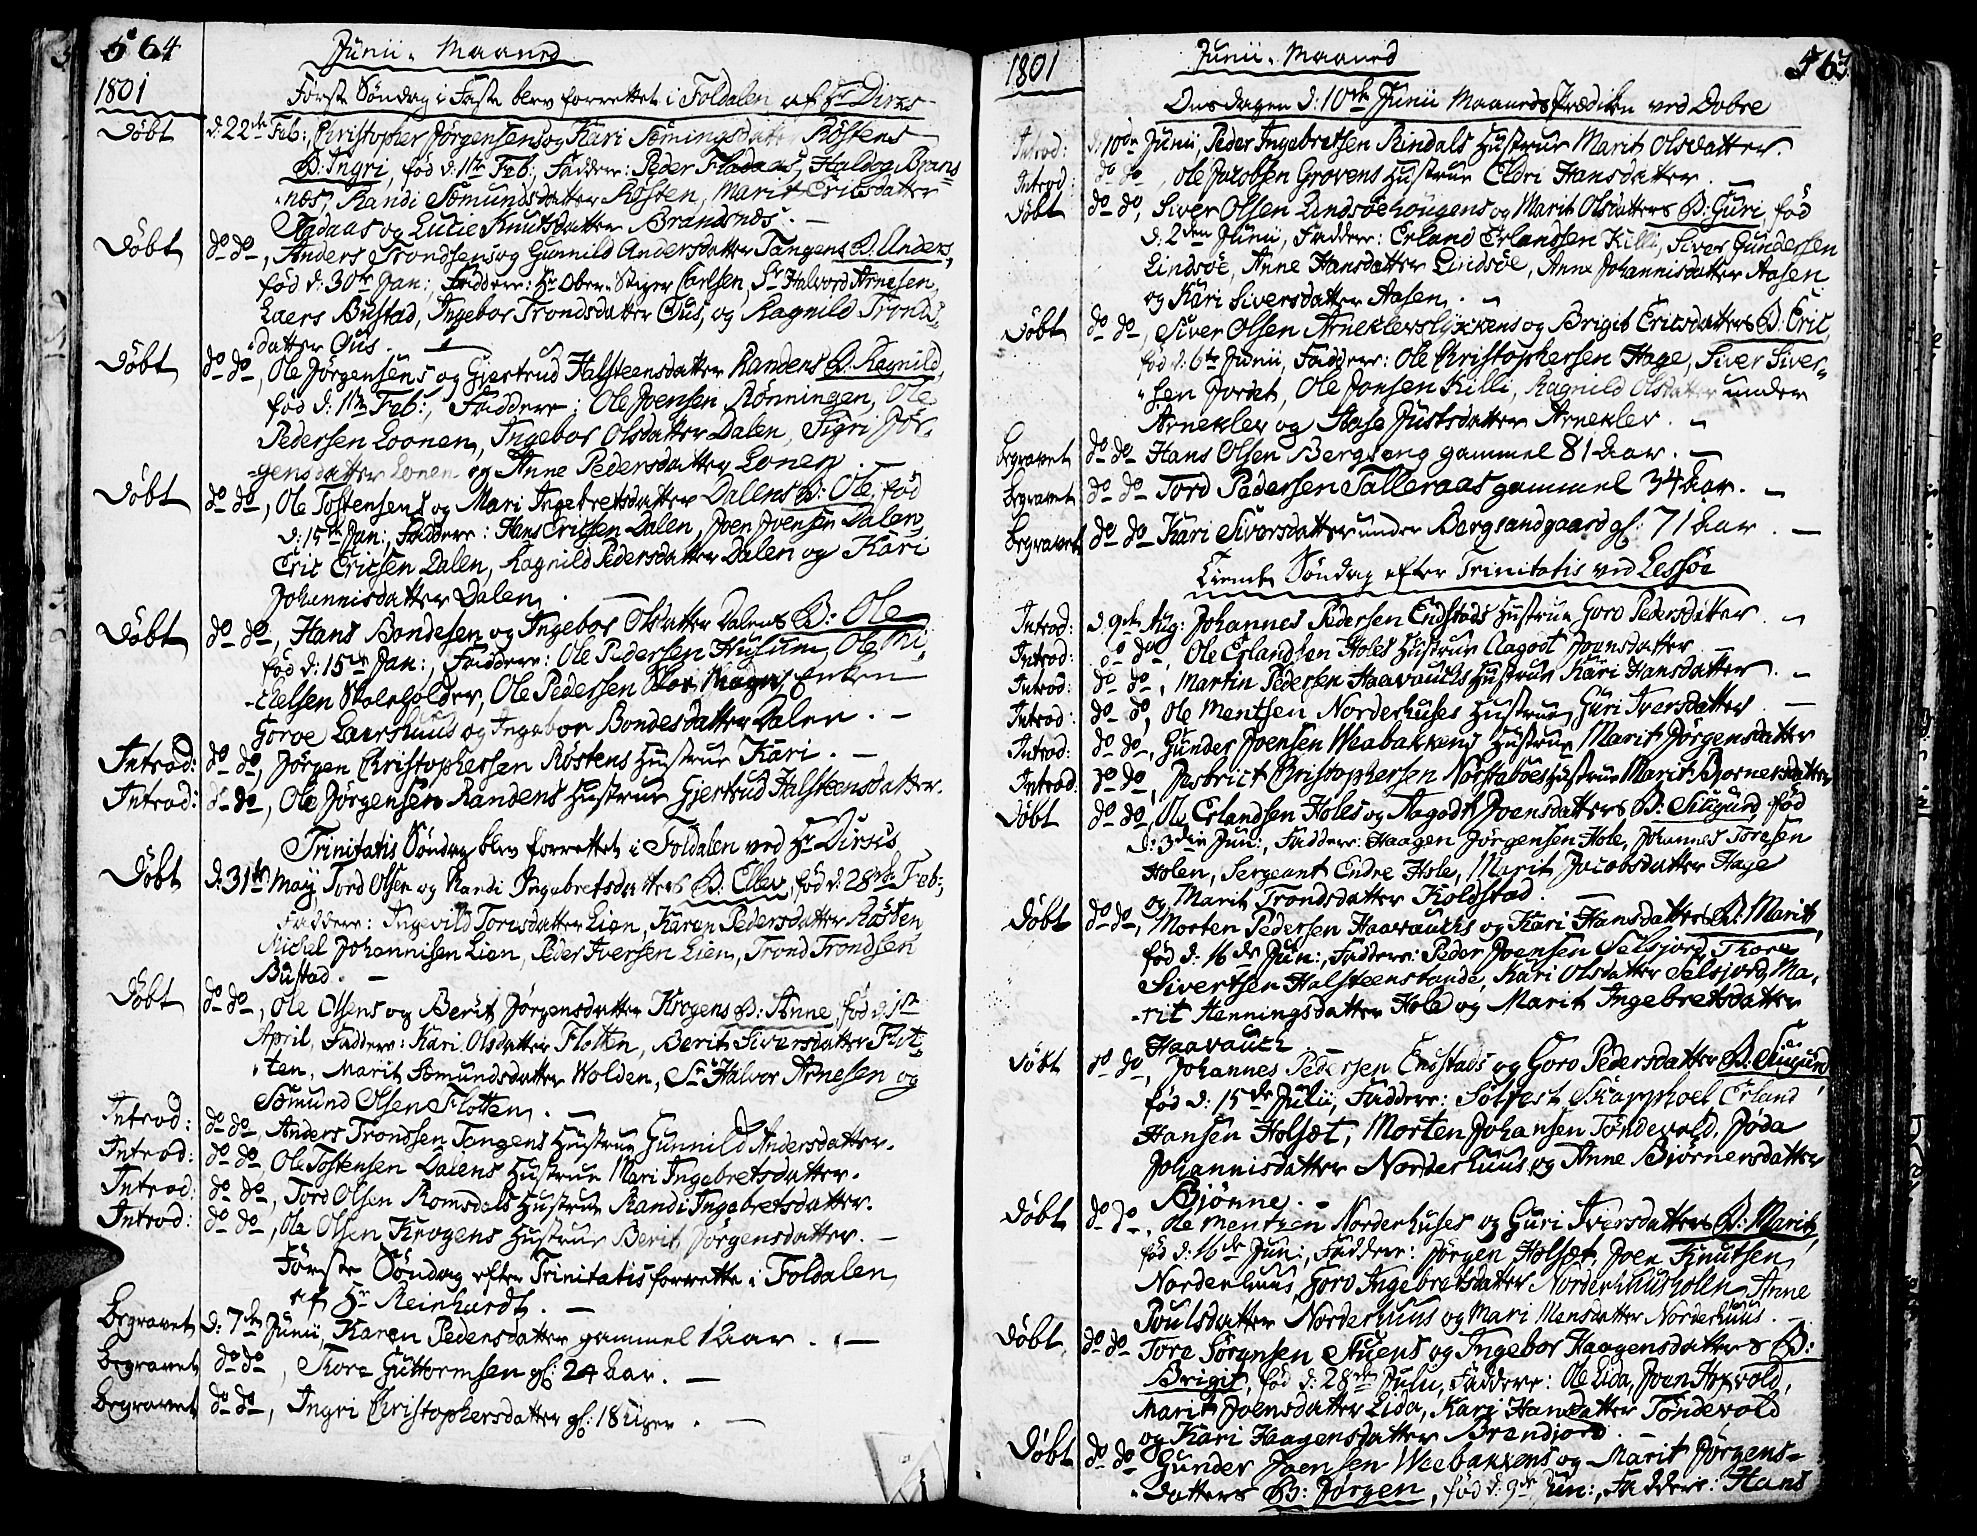 564
1801
Junii Maaned
Første Søndag i Faste blev forrettet i Foldalen af Hr Dircs
Døbt d: 22de Feb:, Christopher Jørgensens og Kari Sømingsdatter Røstens
B: Ingri, fød d: 11te Feb:, Faddere: Peder Fladaas, Haldog Brans
næs, Randi Sømundsdatter Røsten, Marit Ericsdatter
Fladaas og Lucie Knutsdatter Brandsnæs. –
Døbt do do, Anders Trondsens og Gunnild Andersdatter Tangens B: Anders,
fød d: 30te Jan:, Faddere: Hr Ober-Stiger Carlsen, Sr Halvord Arnesen,
Laers Bustad, Ingebor Trondsdatter Øus, og Ragnild Tronds-
datter Øus. –
Døbt do do, Ole Jørgensens og Gjertrud Halsteensdatter Randens B: Ragnild,
fød d: 11te Feb:, Faddere: Ole Joensen Rønningen, Ole
Pedersen Loonen, Ingebor Olsdatter Dalen, Sigri Jør-
-gensdatter Lonen og Anne Pedersdatter Lonen
Døbt do do, Ole Tostensens og Mari Ingebretsdatter Dalens B: Ole, fød
d: 15de Jan:, Faddere: Hans Ericsen Dalen, Joen Joensen Dalen,
Eric Ericsen Dalen, Ragnild Pedersdatter Dalen og Kari
Johannisdatter Dalen. –
Døbt do do, Hans Bondesen og Ingebor Olsdatter Dalens B: Ole
fød d: 15de Jan:, Faddere: Ole Pedersen Husum, Ole Mi-
-chelsen Skoleholder, Ole Pedersen Enken
Gorve Laershuus og Ingebor Bondesdatter Dalen. –
Introd: do do, Jørgen Christophersen Røstens Hustrue Kari. –
Introd: do do, Ole Jørgensen Randens Hustrue Gjertrud Halsteensdatter.
Trinitatis Søndag blev forrettet i Foldalen ved Hr Dircs
Døbt d: 31te May, Tord Olsen og Randi Ingebretsdatters B: Ellev, fød d: 28de Feb:,
Faddere: Ingevild Toresdatter Lien, Karen Pedersdatter Røsten
Michel Johannisen Lien, Peder Iversen Lien, Trond Trondsen
Bustad. –
Døbt do do, Ole Olsens og Berit Jørgensdatter Krogens B: Anne, fød d: 1ste
April, Faddere: Kari Olsdatter Flotten, Berit Siversdatter Flot-
-ten, Marit Sømundsdatter Wolden, Sr Halvor Arnesen og
Sømund Olsen Flotten. –
Introd: do do, Anders Trondsen Tangens Hustrue Gunnild Andersdatter.
Introd: do do Ole Tostensen Dalens Hustrue Mari Ingebretsdatter.
Introd: do do, Tord Olsen Romsdals Hustrue Randi Ingebretsdatter.
Introd: do do, Ole Olsen Krogens Hustrue Berit Jørgensdatter. –
Første Søndag efter Trinitatis forrettet i Foldalen
af Hr Reinhardt. –
Begravet d: 7de Junii, Karen Pedersdatter gammel 1 Aar. –
Begravet do do, Thore Guttormsen gl: 24 Aar. –
Begravet do do, Ingri Christophersdatter gl: 18 Uger. –
1801
Junii Maaned
565
Onsdagen d: 10de Junii Maaneds Prædiken ved Dovre
Introd: d: 10de Junii, Peder Ingebretsen Rindals Hustrue Marit Olsdatter.
Introd: do do, Ole Jacobsen Grovens Hustrue Eldri Hansdatter. –
Døbt do do, Siver Olsen Lindsøehougens og Marit Olsdatters B: Guri, fød
d: 2den Junii, Faddere: Erland Erlandsen Killi, Siver Gundersen
Lindsøe, Anne Hansdatter Lindsøe, Anne Johannisdatter Aasen
og Kari Siversdatter Aasen. –
Døbt do do, Siver Olsen Arneklevslykkens og Brigit Ericsdatters B: Eric,
fød d: 6te Junii, Faddere: Ole Christophersen Hage, Siver Siver-
-sen Jordet, Ole Jonsen Killi, Ragnild Olsdatter under
Arneklev og Stase Justsdatter Arneklev. –
Begravet do do Hans Olsen Bergseng gammel 81 Aar. –
Begravet do do Tord Pedersen Talleraas gammel 34 Aar. –
Begravet do do Kari Siversdatter under Bergsandgaard gl: 71 Aar. –
Tiende Søndag efter Trinitatis ved Lessøe
Introd: d 9de Aug: Johannes Pedersen Endstads Hustrue Goro Pedersdatter. –
Introd: do do, Ole Erlandsen Holes Hustrue Aagodt Joensdatter –
Introd: do do, Martin Pedersen Haavauchs Hustrue Kari Hansdatter. –
Introd: do do, Ole Mentsen Norderhuses Hustrue Guri Iversdatter –
Introd: do do, Gunder Joensen Weabakkens Hustrue Marit Jørgensdatter
Introd: do do, Jesbrict Christophersen Norstaboes Hustrue Marit Bjørnersdatter
Døbt do do, Ole Erlandsen Holes og Aagodt Joensdatters B: Siugurd, fød
d: 3die Jun:, Faddere: Haagen Jørgensen Hole, Johannes Toresen
Holen, Sergeant Endre Hole, Marit Jacobsdatter Hage
og Marit Trondsdatter Koldstad. –
Døbt do do, Morten Pedersen Haavauchs og Kari Hansdatters B: Marit,
fød d: 16de Jun:, Faddere: Peder Joensen Selsjord, Thore
Sivertsen Halsteenstande, Kari Olsdatter Selsjord, Ma-
-rit Henningsdatter Hole og Marit Ingebretsdatter
Haavauch. –
Døbt do do, Johannes Pedersen Endstads og Goro Pedersdatter B: Siugurd,
fød d: 15de Julii, Faddere: Solfest Skarphoel Erland
Hansen Holsæt, Morten Johansen Tøndevold, Jøda
Johannisdatter Norderhuus og Anne Bjørnersdatter
Bjønne. –
Døbt do do, Ole Mentzen Norderhuses og Guri Iversdatters B: Marit,
fød d: 16de Jun:, Faddere: Jørgen Holsæt, Joen Knutsen
Norderhuus, Goro Ingebretsdatter Norderhuusholen, Anne
Poulsdatter Norderhuus og Mari Mensdatter Norderhuus. –
Døbt do do Tore Sørensen Stuens og Ingebor Haagensdatters B:
Brigit, fød d: 28de Julii, Faddere: Ole Lida, Joen Hofvold,
Marit Joensdatter Lida, Kari Hansdatter Tøndevold
og Kari Haagensdatter Brendjord. –
Døbt do do Gunder Joensen Weebakkens og Marit Jørgens-
-datters B: Jørgen, fød d: 9de Jun:, Faddere: Hans